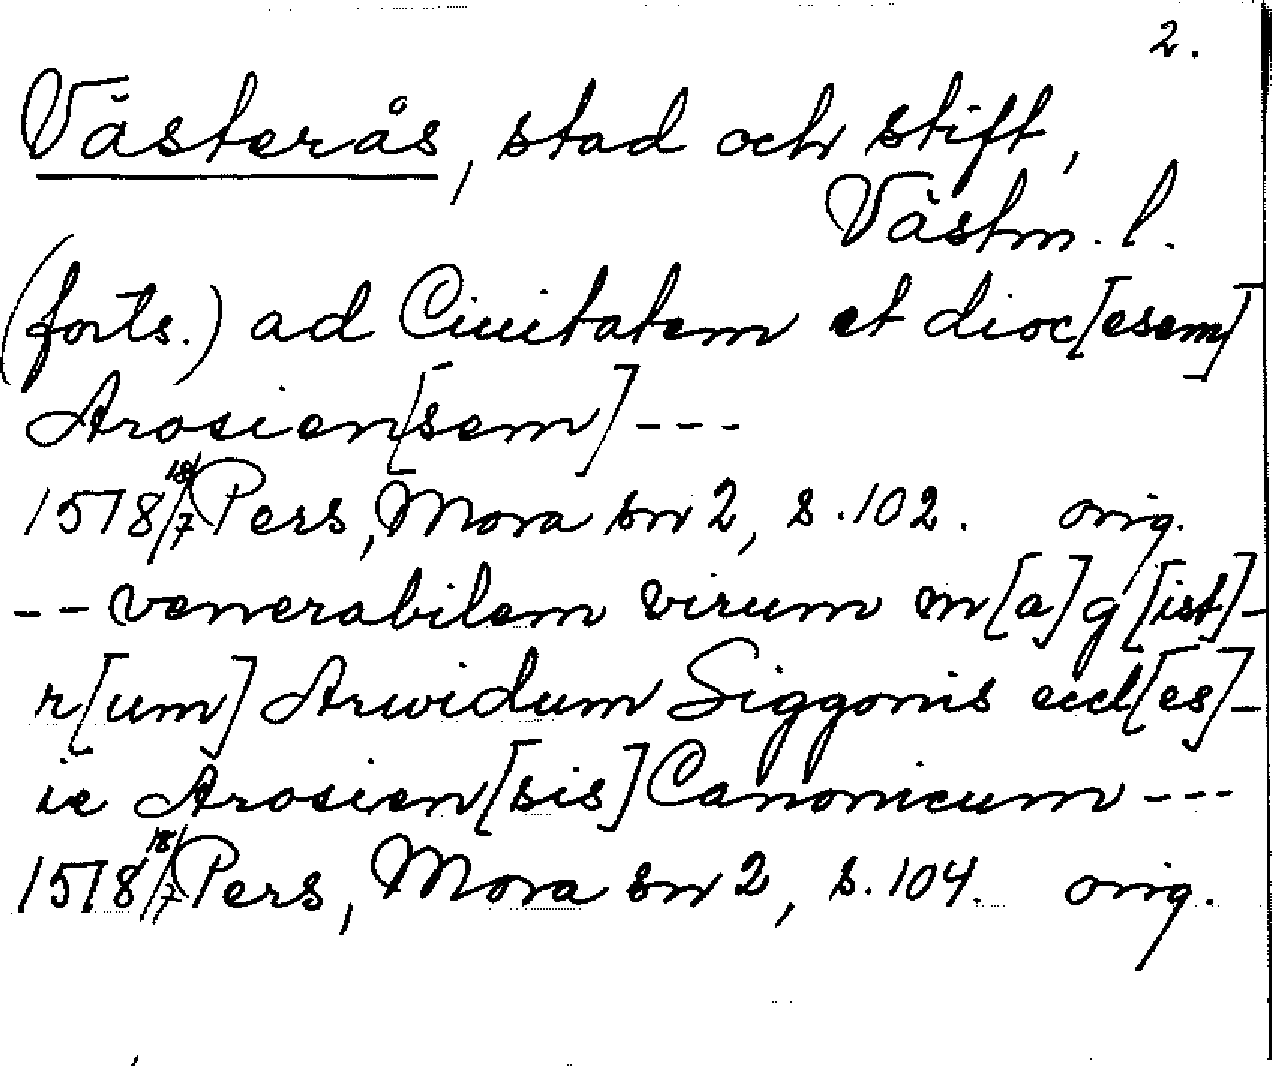 2.
Västerås, stad och stift,
Västm. l.
(forts.) ad Ciuitatem et dioc[esem]
Arosien[sem] ---
1518 18/7 Pers, Mora sn 2, s. 102. orig.
-- venerabilem virum m[a]g[ist]-
r[um] Arwidum Siggonis eccl[es]-
ie Arosien[sis] Canonicum ---
1518 18/7 Pers, Mora sn 2, s. 104. orig.